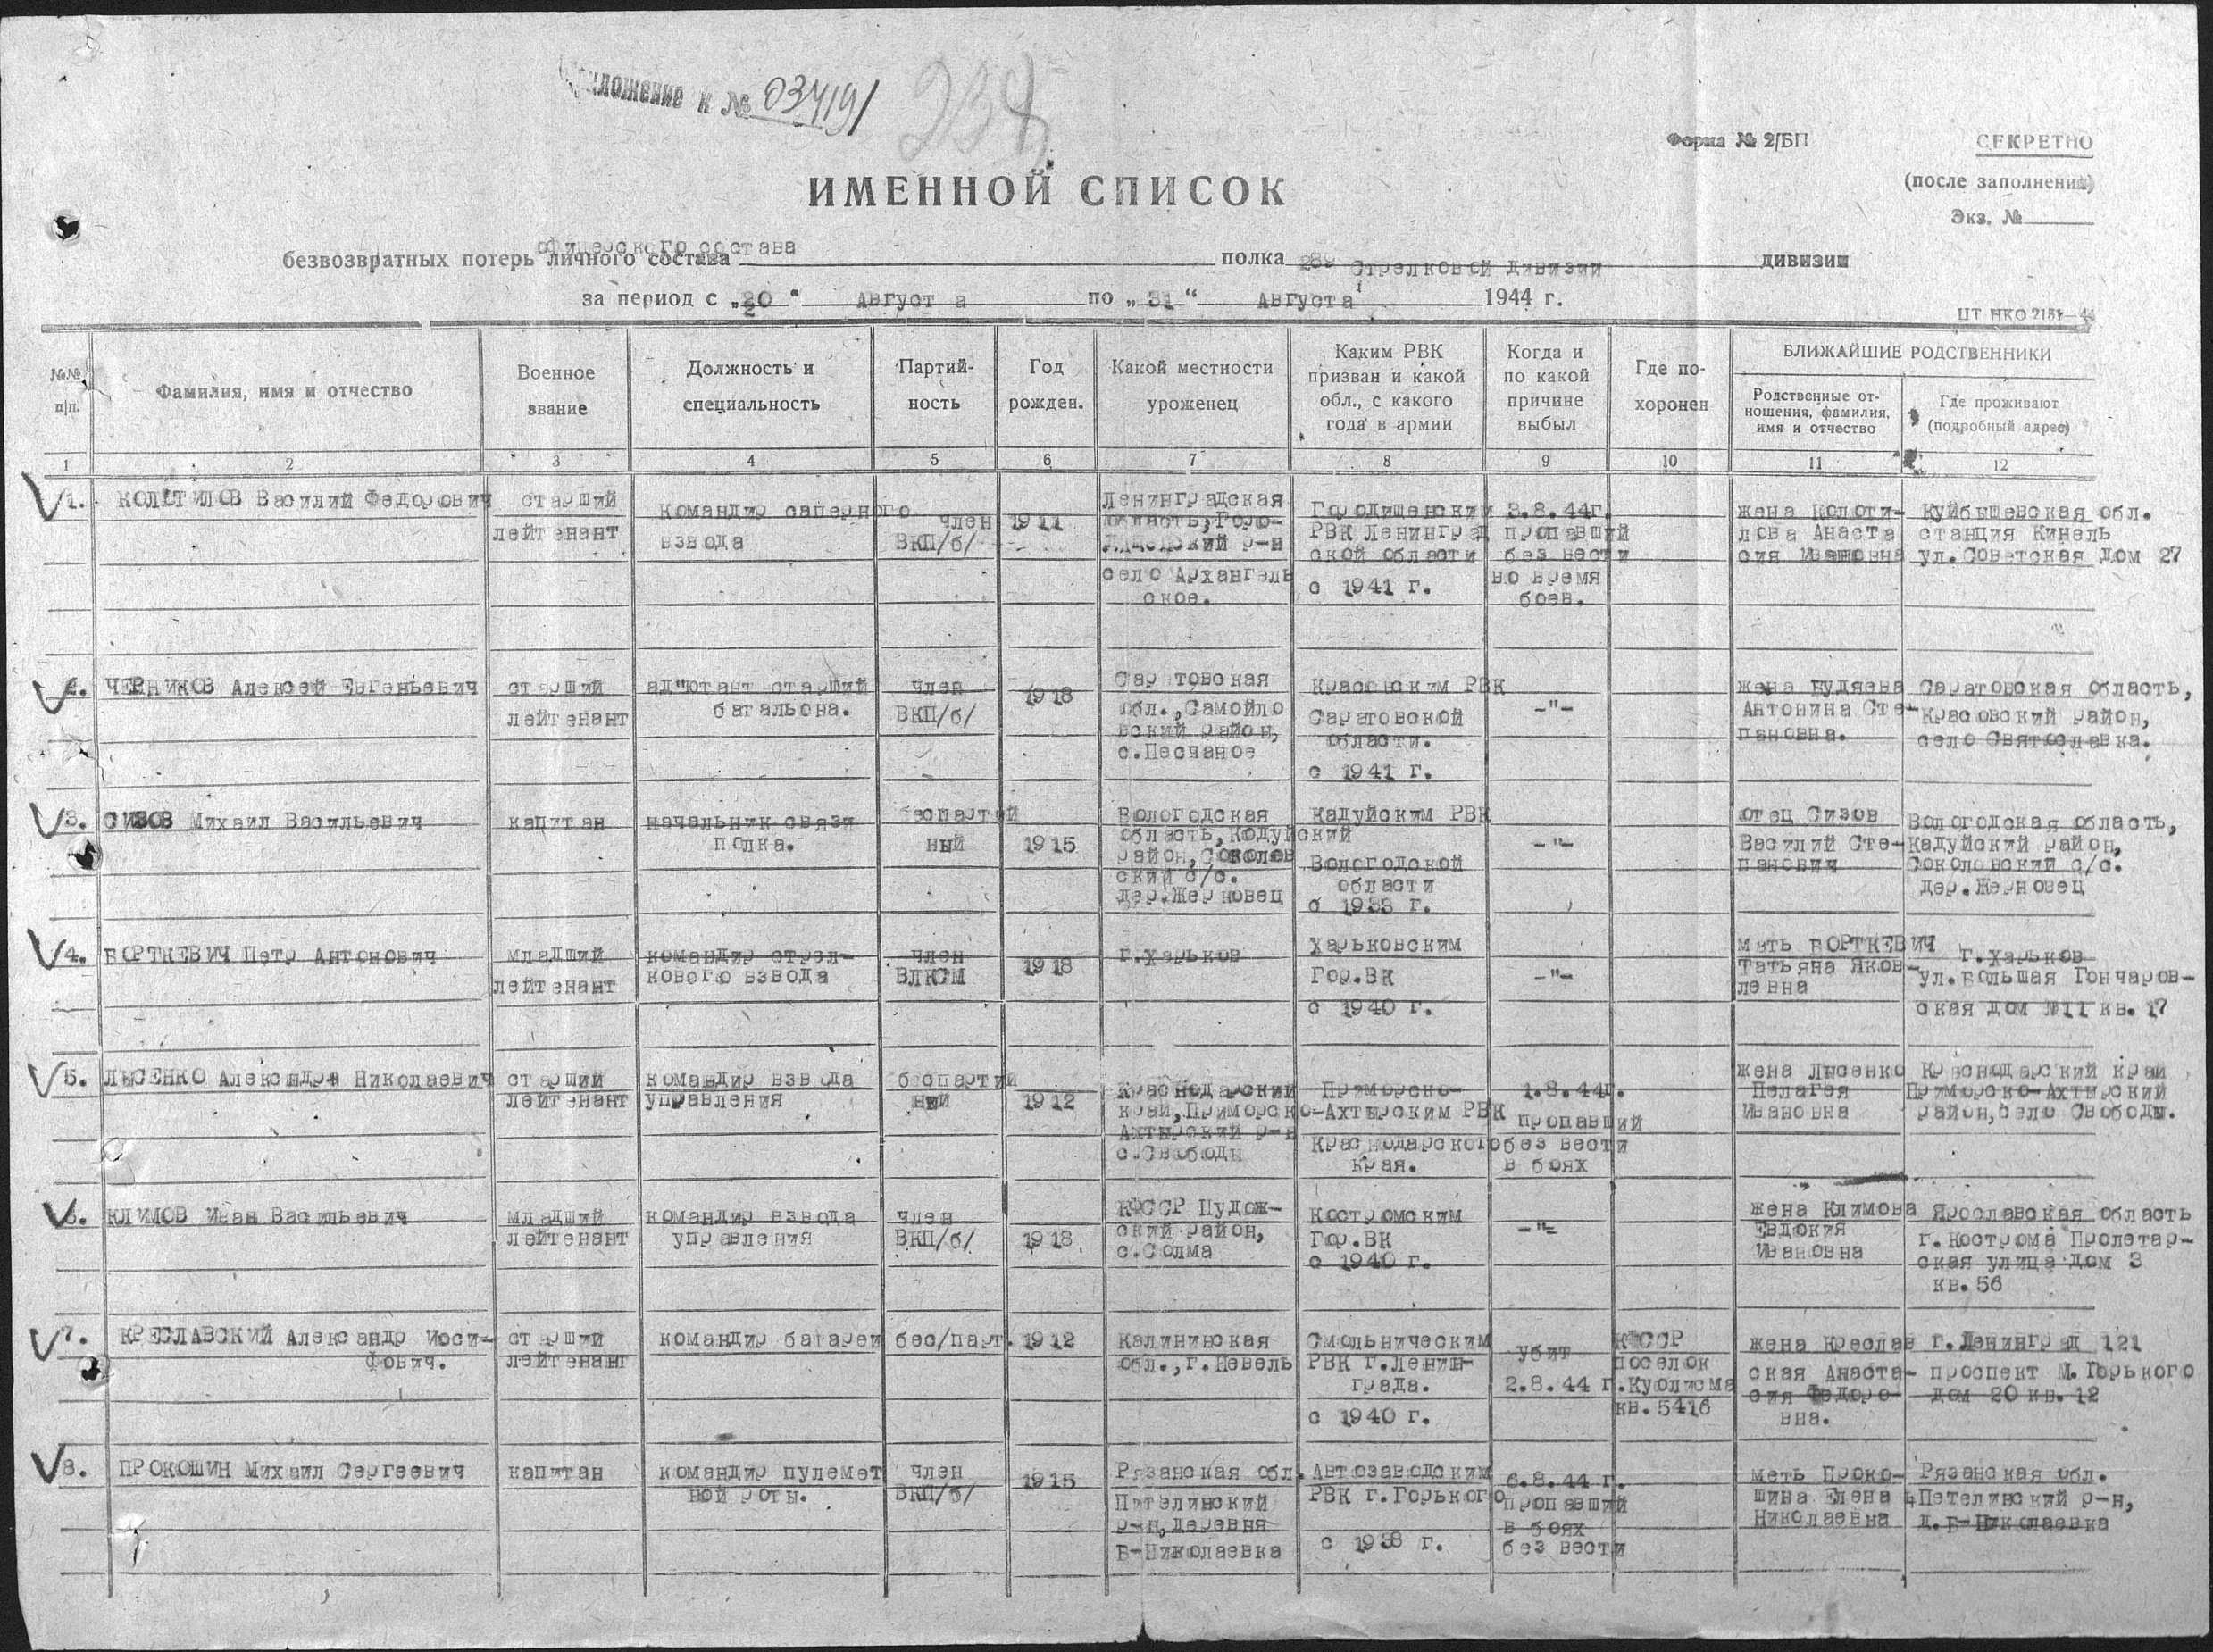 Приложение к № 03419/
234
Форма № 2/БП
СЕКРЕТНО
(после заполнения)
Экз. №
ИМЕННОЙ СПИСОК
офицерского состава
безвозвратных потерь личного состава полка 289 Стрелковой дивизии дивизии
за период с „20“ Август а по „31“ Августа 1944 г.
ЦТ НКО 2151-44
№№ п/п.
Фамилия, имя и отчество
Военное звание
Должность и специальность
Партий-
ность
Год рожден.
Какой местности уроженец
Каким РВК
призван и какой
обл., с какого
года в армии
Когда и
по какой
причине
выбыл
Где по-
хоронен
БЛИЖАЙШИЕ РОДСТВЕННИКИ
Родственные от-
ношения, фамилия,
имя и отчество
Где проживают
(подробный адрес)
1 2 3 4 5 6 7 8 9 10 11 12
1. КОЛОТИЛОВ Василий Федорович
старший
лейтенант
командир саперного
взвода
член
ВКП/б/
1911
Ленинградская
область, Горо-
р-н
село Архангель
ское.
Городищенским
РВК Ленинград
ской области
с 1941 г.
3.8.44г.
пропавший
без вести
во время
боев.
жена Колоти-
лова Анаста
сия Ивановна
Куйбышевская обл.
станция Кинель
ул.Советская дом 27
2. ЧЕРНИКОВ Алексей Евгеньевич
старший
лейтенант
ад"ютант старший
батальона.
член
ВКП/б/
1918
Саратовская
обл.,Самойло
вский район,
с.Песчаное
Красовским РВК
Саратовской
области.
с 1941 г.
-"-
жена Буляева
Антонина Сте-
пановна.
Саратовская область,
Красовский район,
село Святославка.
3. СИЗОВ Михаил Васильевич
капитан
начальник связи
полка.
беспартий
ный
1915
Вологодская
область,Кодуйский
район,Соколов
ский с/с.
дер.Жерновец
Кадуйским РВК
Вологодской
области
с 1938 г.
-"-
отец Сизов
Василий Сте-
панович
Вологодская область,
Кадуйский район,
Соколовский с/с.
дер.Жерновец
4. БОРТКЕВИЧ Петр Антонович
младший
лейтенант
командир стрел-
кового взвода
член
ВЛКСМ
1918
г.Харьков
Харьковским
Гор.ВК
с 1940 г.
-"-
мать БОРТКЕВИЧ
Татьяна Яков-
левна
г.Харьков
ул.Большая Гончаров-
ская дом №11 кв. 17
5. ЛЫСЕНКО Александр Николаевич
старший
лейтенант
командир взвода
управления
беспартий
ный
1912
Краснодарский
край,Приморско-
Ахтырский р-н
с.Свободы
Приморско-
Ахтырским РВК
Краснодарского
края.
1.8.44г.
пропавший
без вести
в боях
жена Лысенко
Пелагея
Ивановна
Краснодарский край
Приморско-Ахтырский
район,село Свободы.
6. КЛИМОВ Иван Васильевич
младший
лейтенант
командир взвода
управления
член
ВКП/б/
1918
КФССР Пудож-
ский район,
с.Солма
Костромским
Гор.ВК
с 1940 г.
-"-
жена Климова
Евдокия
Ивановна
Ярославская область
г.Кострома Пролетар-
ская улица дом 3
кв.56
7. КРЕСЛАВСКИЙ Александр Иоси-
фович.
старший
лейтенант
командир батареи
бес/парт.
1912
Калининская
обл.,г.Невель
Смольническим
РВК г.Ленин-
града.
с 1940 г.
убит
2.8.44 г.
КФССР
поселок
Куолисма
кв.5416
жена Креслав
ская Анаста-
сия Федоро-
вна.
г.Ленинград 121
проспект М.Горького
дом 20 кв.12
8. ПРОКОШИН Михаил Сергеевич
капитан
командир пулемет
ной роты.
член
ВКП/б/
1915
Рязанская обл.
Пителинский
р-н,деревня
Б-Николаевка
Автозаводским
РВК г.Горького
с 1938 г.
6.8.44 г.
пропавший
в боях
без вести
меть Проко-
шина Елена
Николаевна
Рязанская обл.
Петелинский р-н,
д.Б-Николаевка